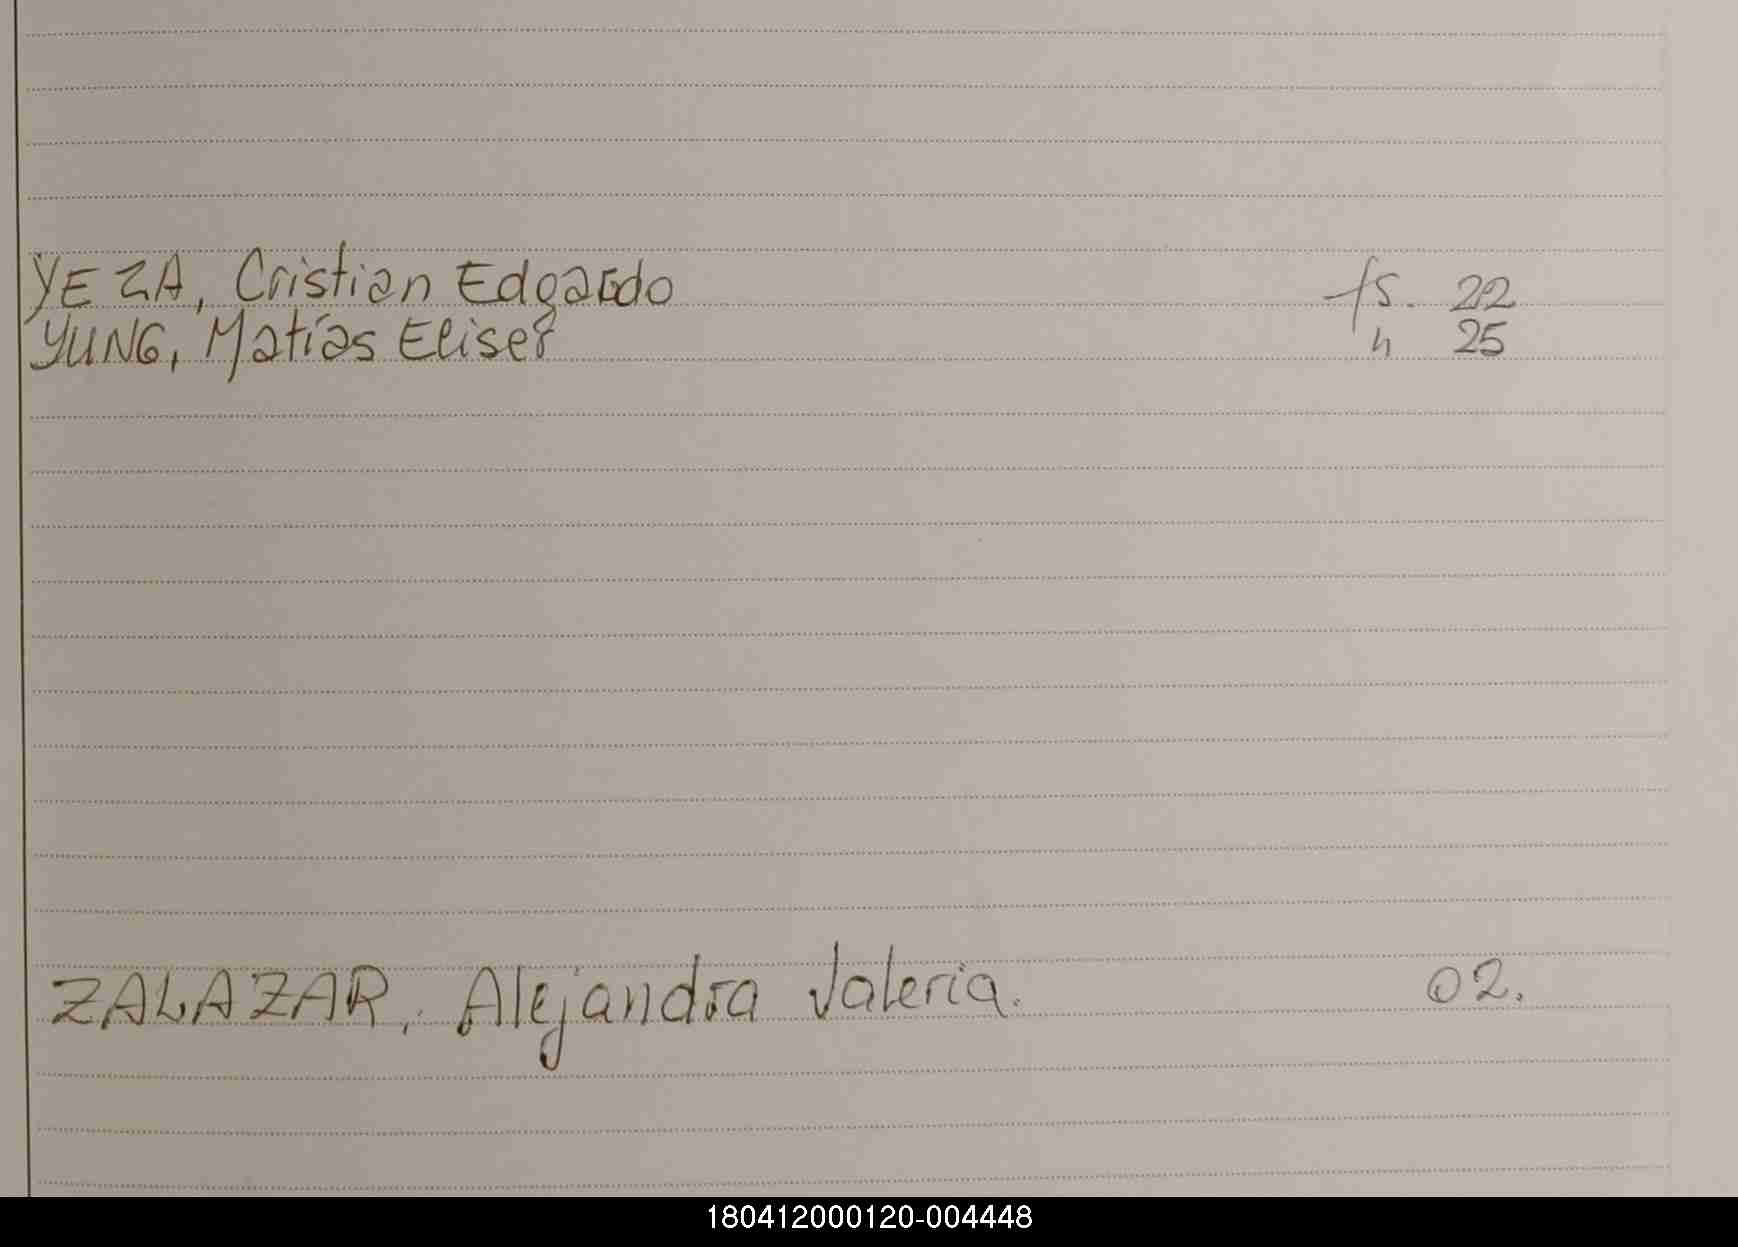 YEZA, Cristian Edgardo fs. 22
YUNG, Matías Eliser " 25
ZALAZAR, Alejandra Valeria. 02.
180412000120-004448